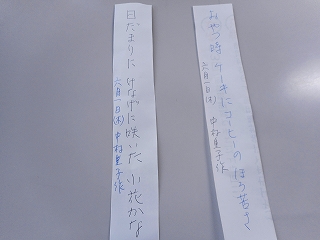 おやつ時 ケーキにコーヒーの ほろ苦さ
六月一日(木) 中村恵子作
日だまりに けなげに咲いた 小花かな
六月一日(木) 中村恵子作